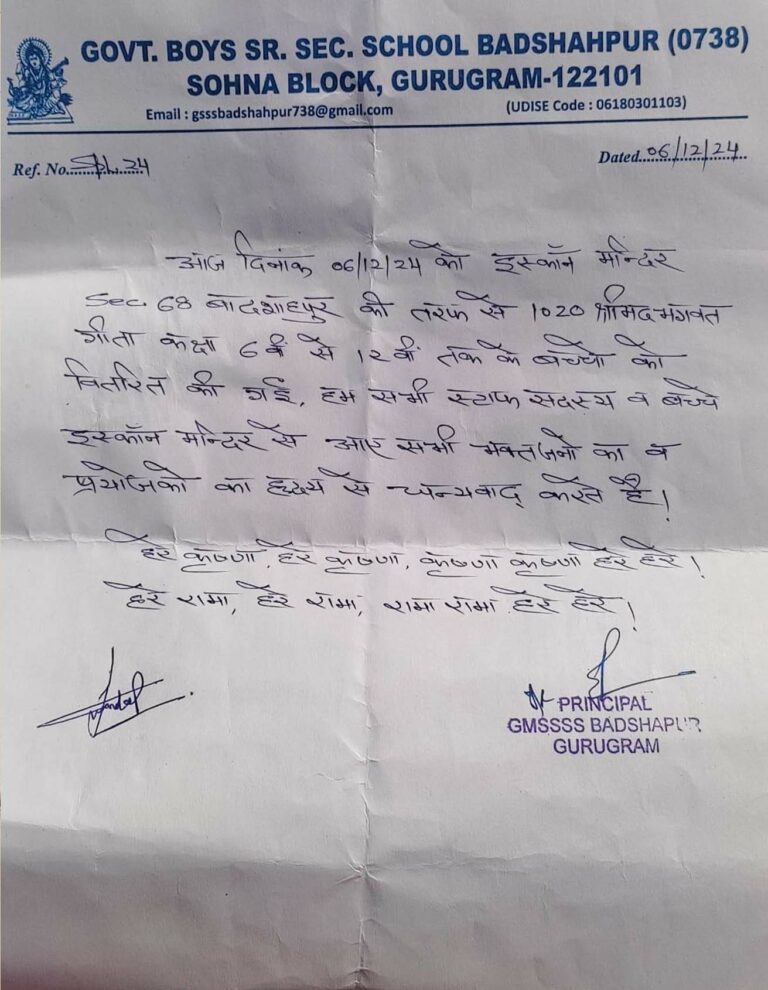 GOVT. BOYS SR. SEC. SCHOOL BADSHAHPUR (0738)
SOHNA BLOCK, GURUGRAM-122101
Email : gsssbadshahpur738@gmail.com (UDISE Code : 06180301103)
Ref. No. Spl. 24 Dated. 06/12/24
आज दिनांक 06/12/24 को इस्कॉन मन्दिर
Sec 68 बादशाहपुर की तरफ से 1020 श्रीमदभगवत
गीता कक्षा 6वीं से 12वीं तक के बच्चो को
वितरित की गई, हम सभी स्टाफ सदस्य व बच्चे
इस्कॉन मन्दिर से आए सभी भक्तजनो का व
प्रयोजको का हृदय से धन्यवाद् करते है!
हरे कृष्णा, हरे कृष्णा, कृष्णा कृष्णा हरे हरे!
हरे रामा, हरे रामा, रामा रामा हरे हरे!
PRINCIPAL
GMSSSS BADSHAPUR
GURUGRAM